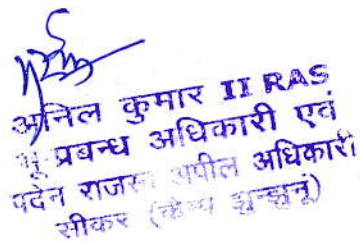 अनिल कुमार II RAS
भू प्रबन्ध अधिकारी एवं
पदेन राजस्व अपील अधिकारी
सीकर (कैम्प झुन्झुनूं)